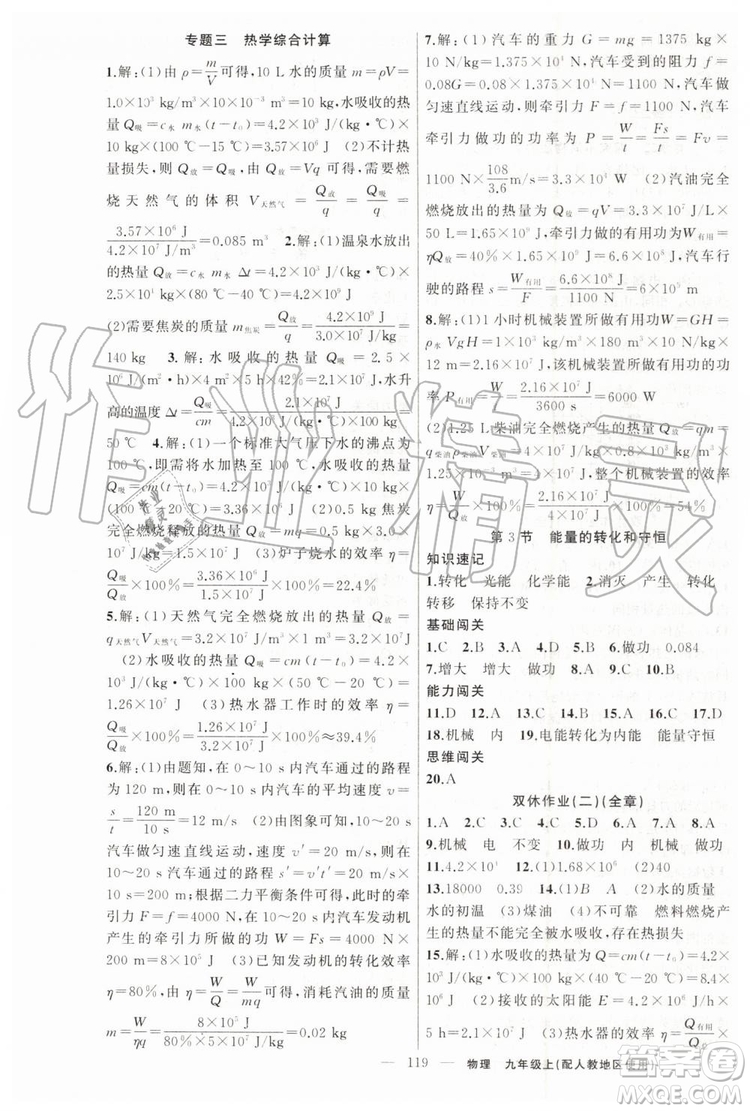 专题三 热学综合计算
1.解:(1)由 ρ=m/V 可得,10 L 水的质量 m=ρV=
1.0×10³ kg/m³×10×10⁻³ m³=10 kg,水吸收的热
量 Q吸=c水 m水(t-t₀)=4.2×10³ J/(kg·℃)×
10 kg×(100 ℃-15 ℃)=3.57×10⁶ J (2)不计
热量损失,则 Q放=Q吸,由 Q放=Vq 可得,需要燃
烧天然气的体积 V天然气=Q放/q=Q吸/q=
3.57×10⁶ J/4.2×10⁷ J/m³=0.085 m³ 2.解:(1)温泉水放出
的热量 Q放=c水 m水 Δt=4.2×10³ J/(kg·℃)×
2.5×10⁴ kg×(80 ℃-40 ℃)=4.2×10⁹ J
(2)需要焦炭的质量 m焦炭=Q放/q=4.2×10⁹ J/3.0×10⁷ J/kg=
140 kg 3.解:水吸收的热量 Q吸=2.5×
10⁶ J/(m²·h)××42%=2.1×10⁷ J,水升
高的温度 Δt=2.1×10⁷ J/4.2×10³ J/(kg·℃)×100 kg=
50 ℃ 4.解:(1)一个标准大气压下水的沸点为
100 ℃,则水吸收的热量 Q吸=cm(t-t₀)=4.2×
完全燃烧释放的热量 Q放=mq=
(3)炉子烧水的效率
η=Q吸/Q放×100%=3.36×10⁶ J/1.5×10⁷ J×100%=22.4%
5.解:(1)天然气完全燃烧放出的热量 Q放=
q天然气V天然气=3.2×10⁷ J/m³×1 m³=3.2×10⁷ J
(2)水吸收的热量 Q吸=cm(t-t₀)=4.2×
10³ J/(kg·℃)×100 kg×(50 ℃-20 ℃)=
1.26×10⁷ J (3)热水器工作时的效率 η=
Q吸/Q放×100%=1.26×10⁷ J/3.2×10⁷ J×100%≈39.4%
6.解:(1)由图可知,在 0～10 s 内汽车通过的路程
为 120 m,则在 0～10 s 内汽车的平均速度 v=
s/t=120 m/10 s=12 m/s (2)由图象可知,10～20 s
汽车做匀速直线运动,速度 v′=20 m/s,10～
20 s 汽车通过的路程 s′=v′t′=20 m/s×10 s=
200 m;根据二力平衡条件可得,此时汽车的牵
引力 F=f=4000 N,在 10～20 s 内汽车发动机产
生的牵引力所做的功 W=Fs=4000 N×200 m=
8×10⁵ J (3)已知发动机的转化效率
η=80%,由 η=W/Q=W/mq可得,消耗汽油的质量
m=W/ηq=8×10⁵ J/80%×5×10⁷ J/kg=0.02 kg
7.解:(1)汽车的重力 G=mg=1.375×
10³ kg×10 N/kg=1.375×10⁴ N,汽车受到的阻力 f=
0.08G=0.08×1.375×10⁴ N=1100 N,汽车做
匀速直线运动,牵引力 F=f=1100 N,汽车牵
引力做功的功率 P=W/t=Fs/t=Fv=
1100 N×108/3.6 m/s=3.3×10⁴ W (2)汽油完全
燃烧放出的热量 Q放=qV=3.3×10⁷ J/L×
50 L=1.65×10⁹ J,牵引力做的有用功 W有用=
ηQ放=40%×1.65×10⁹ J=6.6×10⁸ J,汽车行
驶的路程 s=W有用/F=6.6×10⁸ J/1100 N=6×10⁵ m
8.解:(1)1 小时机械装置所做有用功W=GH=
ρ水 VgH=1.0×10³ kg/m³×
10 N/kg×12 m=2.16×10⁷ J,该机械装置的功
率 P有用=W/t=2.16×10⁷ J/3600 s=6000 W
(2)1.25 L 柴油完全燃烧产生的热量 Q=
1.25×10⁻³ m³=4.0×10⁷ J,整个机械装置的效
率 η=W/Q×100%=2.16×10⁷ J/4.0×10⁷ J×100%=54%
第 3 节 能量的转化和守恒
知识速记
1.转化 光能 化学能 2.消灭 产生 转化
转移 保持不变
基础闯关
1.C 2.B 3.A 4.C 5.B 6.做功 0.084
7.增大 增大 做功 8.A 9.A 10.C
能力闯关
11.D 12.A 13.C 14.C 15.A 16.C 17.D
18.机械 内 19.电能转化为内能 能量守恒
思维闯关
20.A
双休作业(二)(全章)
1.A 2.C 3.C 4.A 5.D 6.C 7.A 8.B
9.机械 电 不变 10.做功 内 机械 做功
11.4.2×10⁴ 12.(1)1.68×10⁶ (2)40
13.18000 0.39 14.(1)A (2)水的质量
水的温度 (3)煤油 不可靠 燃料燃烧产
生的热量不能完全被水吸收,存在热损失
15.解:(1)水吸收的热量 Q吸=cm(t-t₀)=4.2×
10³ J/(kg·℃)×100 kg×20 ℃=8.4×
10⁶ J (2)接收的太阳能
5 h=1.4×10⁷ J,太阳能热水器的效率 η=Q有用/Q总×
119 物理 九年级上(配人教地区使用)
作业精灵